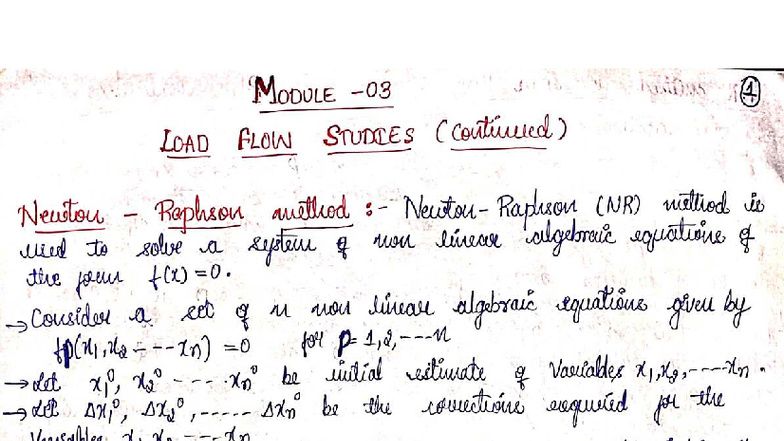 MODULE -03
1
LOAD FLOW STUDIES (Continued)
Newton - Raphson method :- Newton-Raphson (NR) method is
used to solve a system of non linear algebraic equations of
the form f(x) =0.
→Consider a set of n non linear algebraic equations given by
fp(x₁,x₂ - - --xn) =0 for p= 1,2,----n
→Let x₁⁰, x₂⁰ - - - - xn⁰ be initial estimate of Variables x₁,x₂,----xn.
→Let Δx₁⁰, Δx₂⁰,----- Δxn⁰ be the corrections required for the
Variables x₁ x₂ - - -- xn